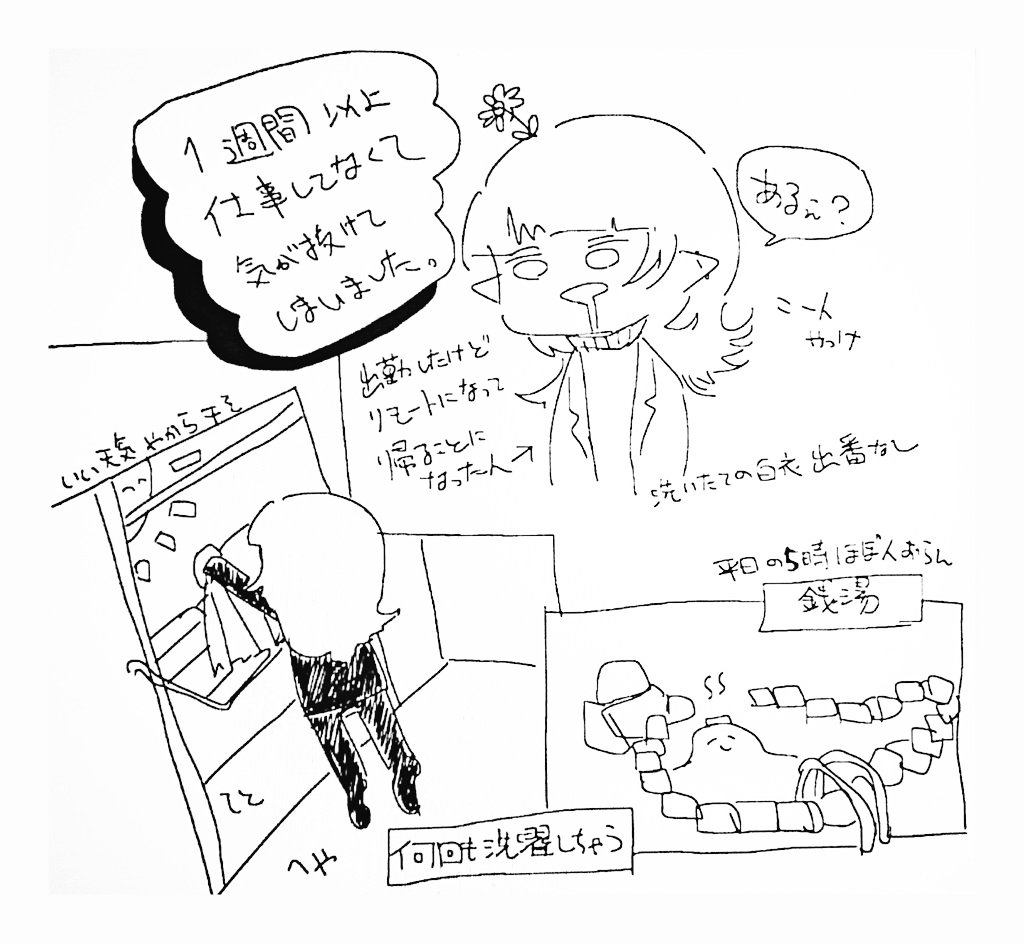 1週間以上
仕事してなくて
気が抜けて
しまいました。
あるぇ?
こーん
やつけ
出勤したけど
リモートになって
帰ることに
なったん→
洗いたての白衣出番なし
いい天気やからする
てと
へや
何回も洗濯しちゃう
平日の5時ほぼ人おらん
銭湯